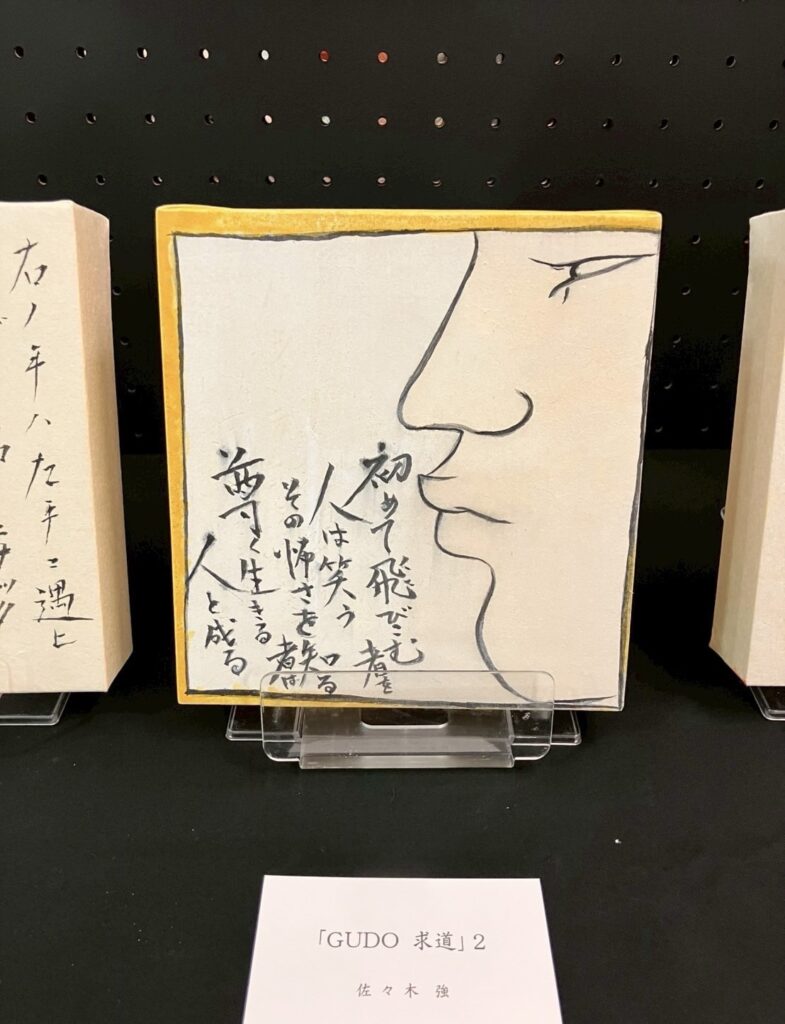 右ノ手ハ左手ニ遇ヒ
初めて飛びこむ者を
人は笑う
その怖さを知る者は
尊く生きる
人と成る
「GUDO 求道」2
佐々木 強